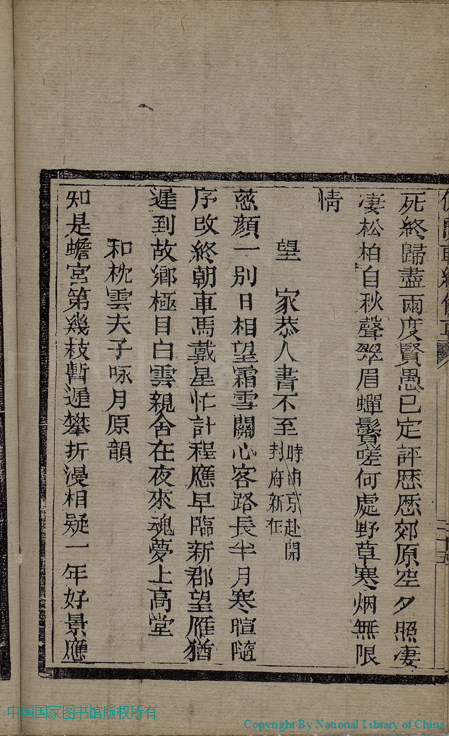 死終歸盡兩度賢愚已定評歷歷郊原空夕照凄
凄松柏自秋聲翠眉蟬鬢嗟何處野草寒烟無限
情
望　家恭人書不至
封府新任
慈顏一別日相望霜雪關心客路長半月寒暄隨
序改終朝車馬戴星忙計程應早臨新郡望雁猶
遲到故鄉極目白雲親舍在夜來魂夢上高堂
和枕雲夫子咏月原韻
知是蟾宮第幾枝暫遲攀折漫相疑一年好景應
中国国家图书馆版权所有
Copyright By National Library of China